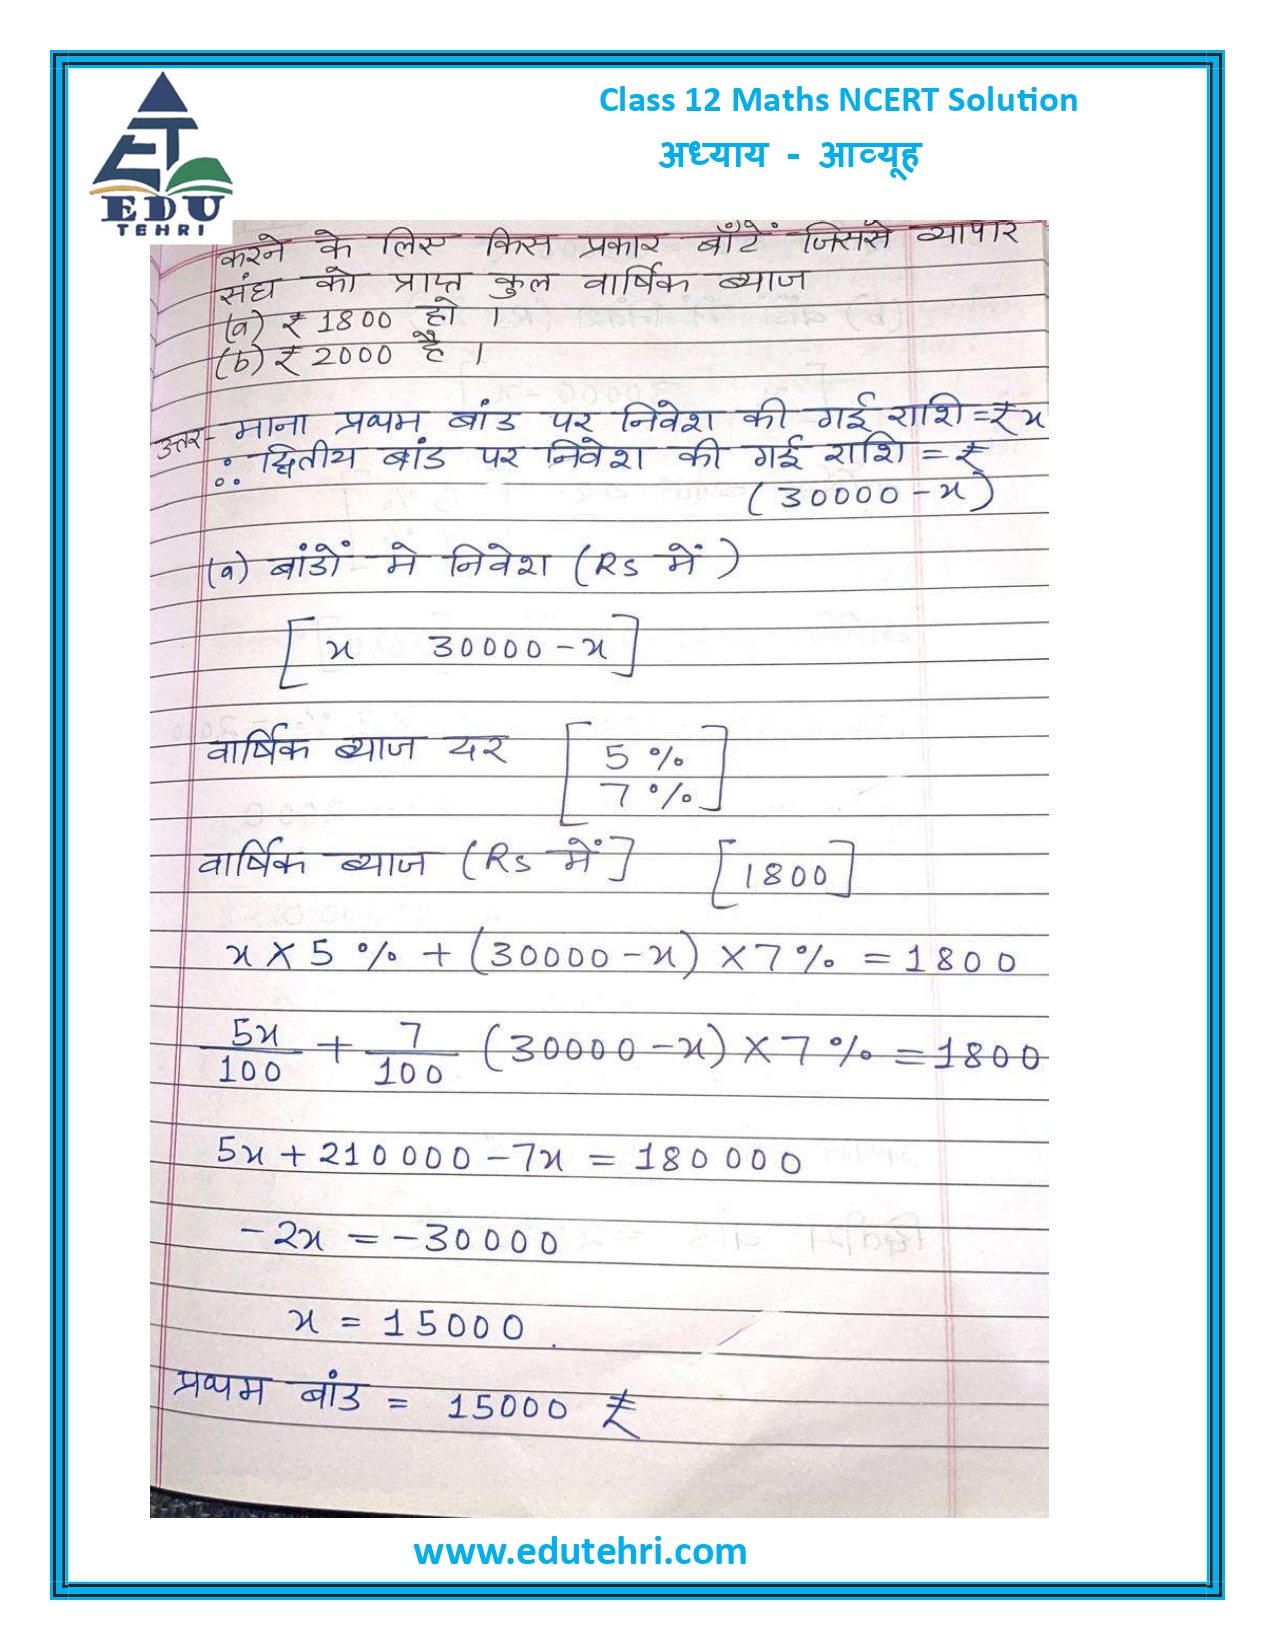 Class 12 Maths NCERT Solution
अध्याय - आव्यूह
EDU
TEHRI
करने के लिए किस प्रकार बाँटें जिससे व्यापार
संघ को प्राप्त कुल वार्षिक ब्याज
(a) ₹ 1800 हो ।
(b) ₹ 2000 है ।
उत्तर- माना प्रथम बांड पर निवेश की गई राशि = ₹ x
∴ द्वितीय बांड पर निवेश की गई राशि = ₹
(30000 - x)
(a) बांडों मे निवेश (Rs में)
[x 30000 - x]
वार्षिक ब्याज दर [5 %
7 %]
वार्षिक ब्याज (Rs में] [1800]
x × 5 % + (30000 - x) × 7 % = 1800
5x/100 + 7/100 (30000 - x) × 7 % = 1800
5x + 210000 - 7x = 180000
- 2x = - 30000
x = 15000
प्रथम बांड = 15000 ₹
www.edutehri.com